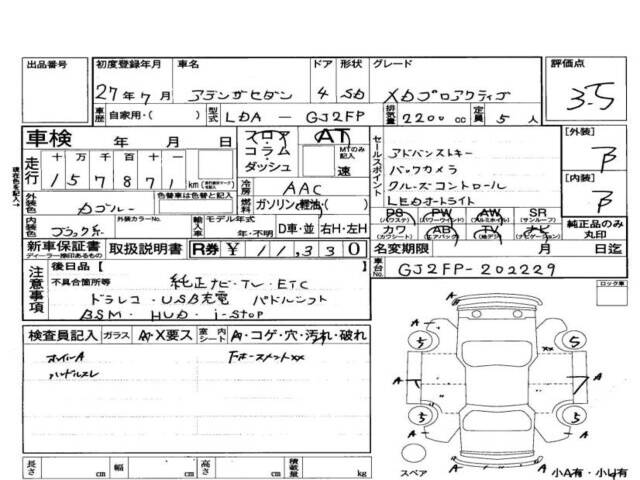 出品番号 初度登録年月 車名 ドア 形状 グレード 評価点
27年7月 アテンザセダン 4 SD XDプロアクティブ 3.5
車歴 自家用・( ) 型式 LDA - GJ2FP 排気量 2200 cc 定員 5 人
車検 年 月 日 フロア・コラム・ダッシュ AT MTのみ記入 速
走行 十 万 千 百 十 一
157871 km
冷房 AAC
外装色 Dブルー 色替車は色替と記入 燃料 ガソリン(軽油)( )
内装色 ブラック系 外装カラーNo. 輸入車 モデル年式 年・不明 D車・並 右H・左H
新車保証書 ディーラー捺印あるもの 取扱説明書 R券 ¥ 11,330
セールスポイント
アドバンストキー
バックカメラ
クルーズコントロール
LEDオートライト
PS (パワステ) PW (パワーウインド) AW (アルミホイル) SR (サンルーフ)
カワ (カワシート) AB (エアバック) TV (地デジ) ナビ (ナビゲーション)
[外装]
[内装]
純正品のみ丸印
名変期限 月 日迄
車台No. GJ2FP-202229
現在色を記入→
注意事項
後日品 [ ]
不具合箇所等 純正ナビ・TV・ETC
ドラレコ・USB充電 パドルシフト
BSM・HUD・i-stop
検査員記入 ガラス A・X要ス 室内シート A・コゲ・穴・汚れ・破れ
オイルA
ハンドルスレ
ロック車
5 5
A A A
5 5
A A
スペア
小A有・小U有
長さ cm 幅 cm 高さ cm 積載量 kg